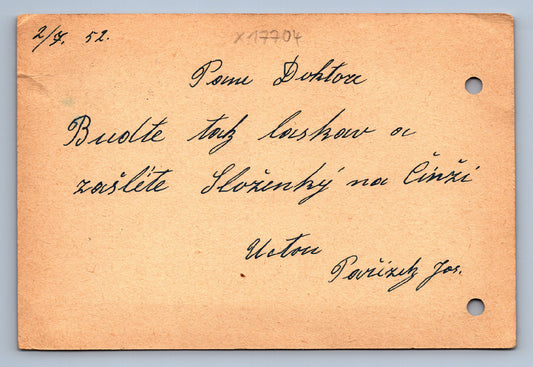 2/7. 52.
x17704
Pane Doktore
Buďte tak laskav a
zašlete Složenky na Činži
Uctou
Pařízek Jos.